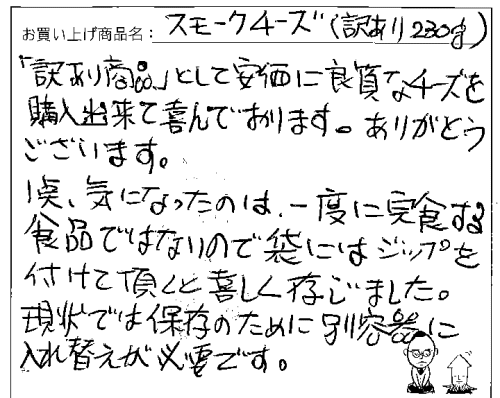 お買い上げ商品名: スモークチーズ(訳あり230g)
「訳あり商品」として安価に良質なチーズを
購入出来て喜んでおります。ありがとう
ございます。
1点、気になったのは、一度に完食する
食品ではないので袋にはジップを
付けて頂くと喜しく存じました。
現状では保存のために別容器に
入れ替えが必要です。